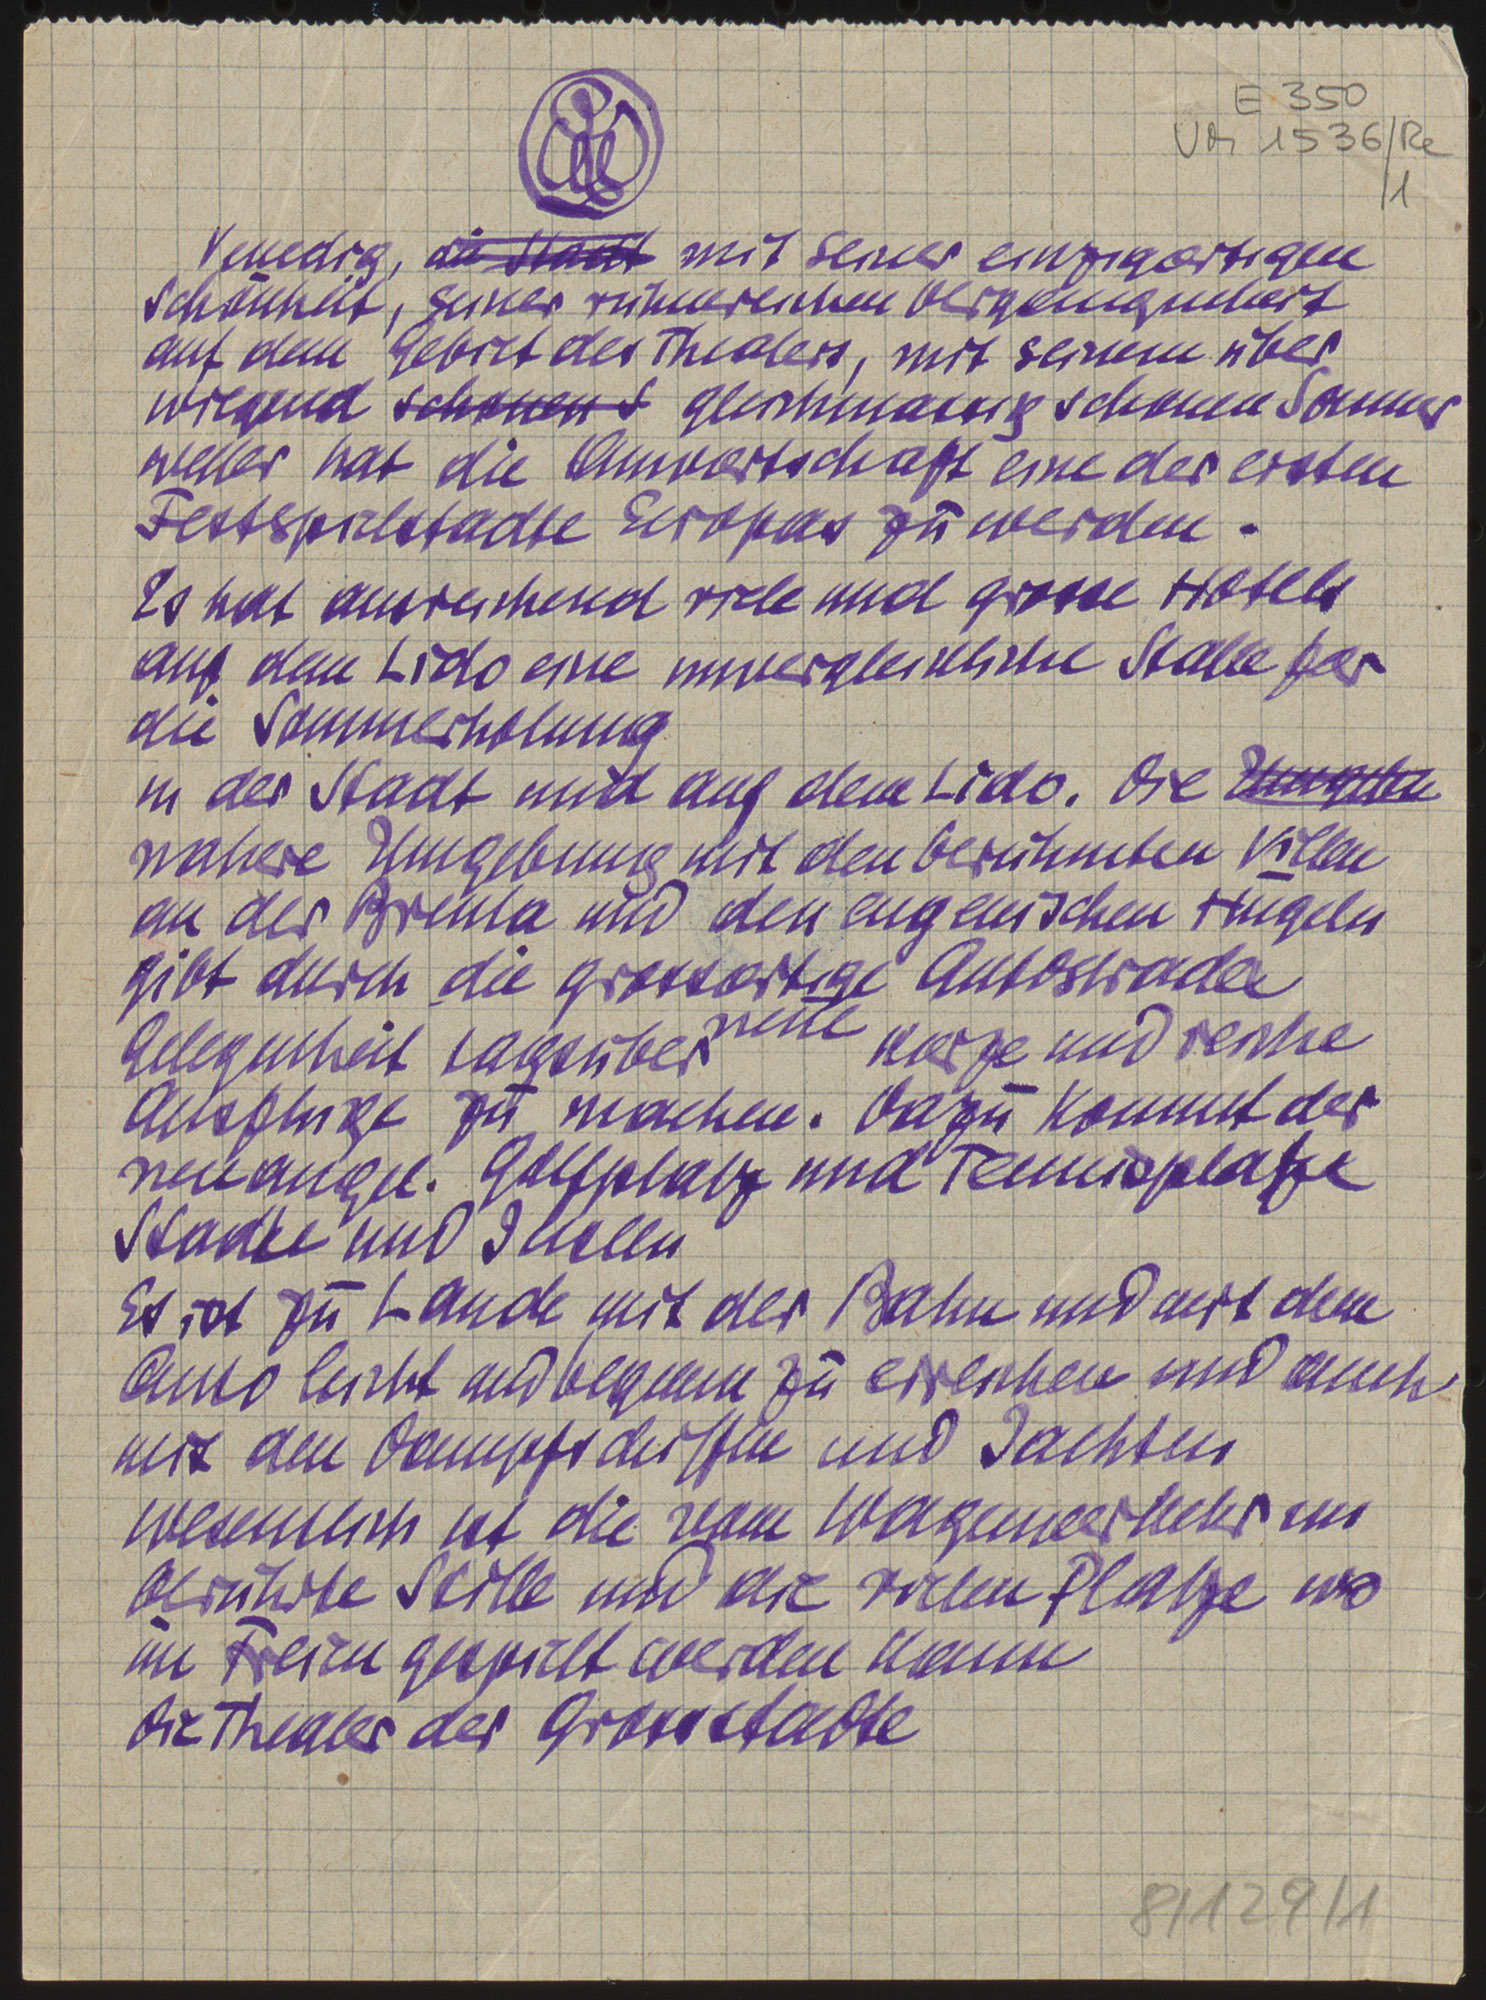 E 350
VM 1536/Re
/1
Venedig, die Stadt mit seiner einzigartigen
Schönheit, seiner ruhmreichen Vergangenheit
auf dem Gebiet des Theaters, mit seinem über
wiegend schonen S gleichmassig schonen Sommer
wetter hat die Anwartschaft eine der ersten
Festspielstadte Europas zu werden.
Es hat ausreichend viele und grosse Hotels
auf dem Lido eine unvergleichliche Stelle fur
die Sommererholung
in der Stadt und auf dem Lido. Die Umgebu
nahere Umgebung mit den beruhmten Villen
an der Brenta und den eugeneischen Hugeln
gibt durch die grossartige Autostrada
Gelegenheit tagsuber kurze und reiche
Ausfluge zu machen. Dazu kommt der
neu angel. Golfplatz und Tennisplatze
Stadte und
Es ist zu Lande mit der Bahn und mit dem
Auto leicht und bequem zu erreichen und auch
mit den Dampfschiffen und Jachten
wesentlich ist die vom Wagenverkehr un
beruhrte Stille und die vielen Platze wo
im Freien gespielt werden kann
Die Theater der Grossstadte
8/129/1